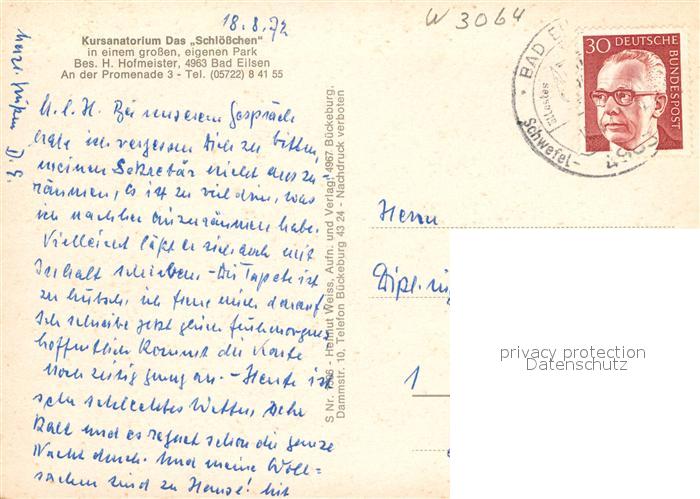 18.8.72
W 3064
Kursanatorium Das „Schlößchen"
in einem großen, eigenen Park
Bes. H. Hofmeister, 4963 Bad Eilsen
An der Promenade 3 - Tel. (05722) 8 41 55
M. l. H. Bei unserem Gespräch
habe ich vergessen Dich zu bitten,
meinen Sekretär nicht auszu-
räumen, es ist zu viel drin, was
ich nachher einzuräumen habe.
Vielleicht läßt er sich auch mit
Inhalt schieben. - Die Tapete ist
zu hübsch, ich freue mich darauf.
Ich schreibe jetzt gleich frühmorgens
hoffentlich kommt die Karte
noch zeitig genug an. - Heute ist
sehr schlechtes Wetter, sehr
kalt und es regnet schon die ganze
Nacht durch. Und meine Woll-
sachen sind zu Hause! Mit
herzl. Grüßen D. G.
S Nr. - Helmut Weiss, Aufn. und Verlag, 4967 Bückeburg,
Dammstr. 10, Telefon Bückeburg 43 24 - Nachdruck verboten
BAD
Schwefel-
30 DEUTSCHE
BUNDESPOST
Herrn
Dipl. Ing
1
privacy protection
Datenschutz